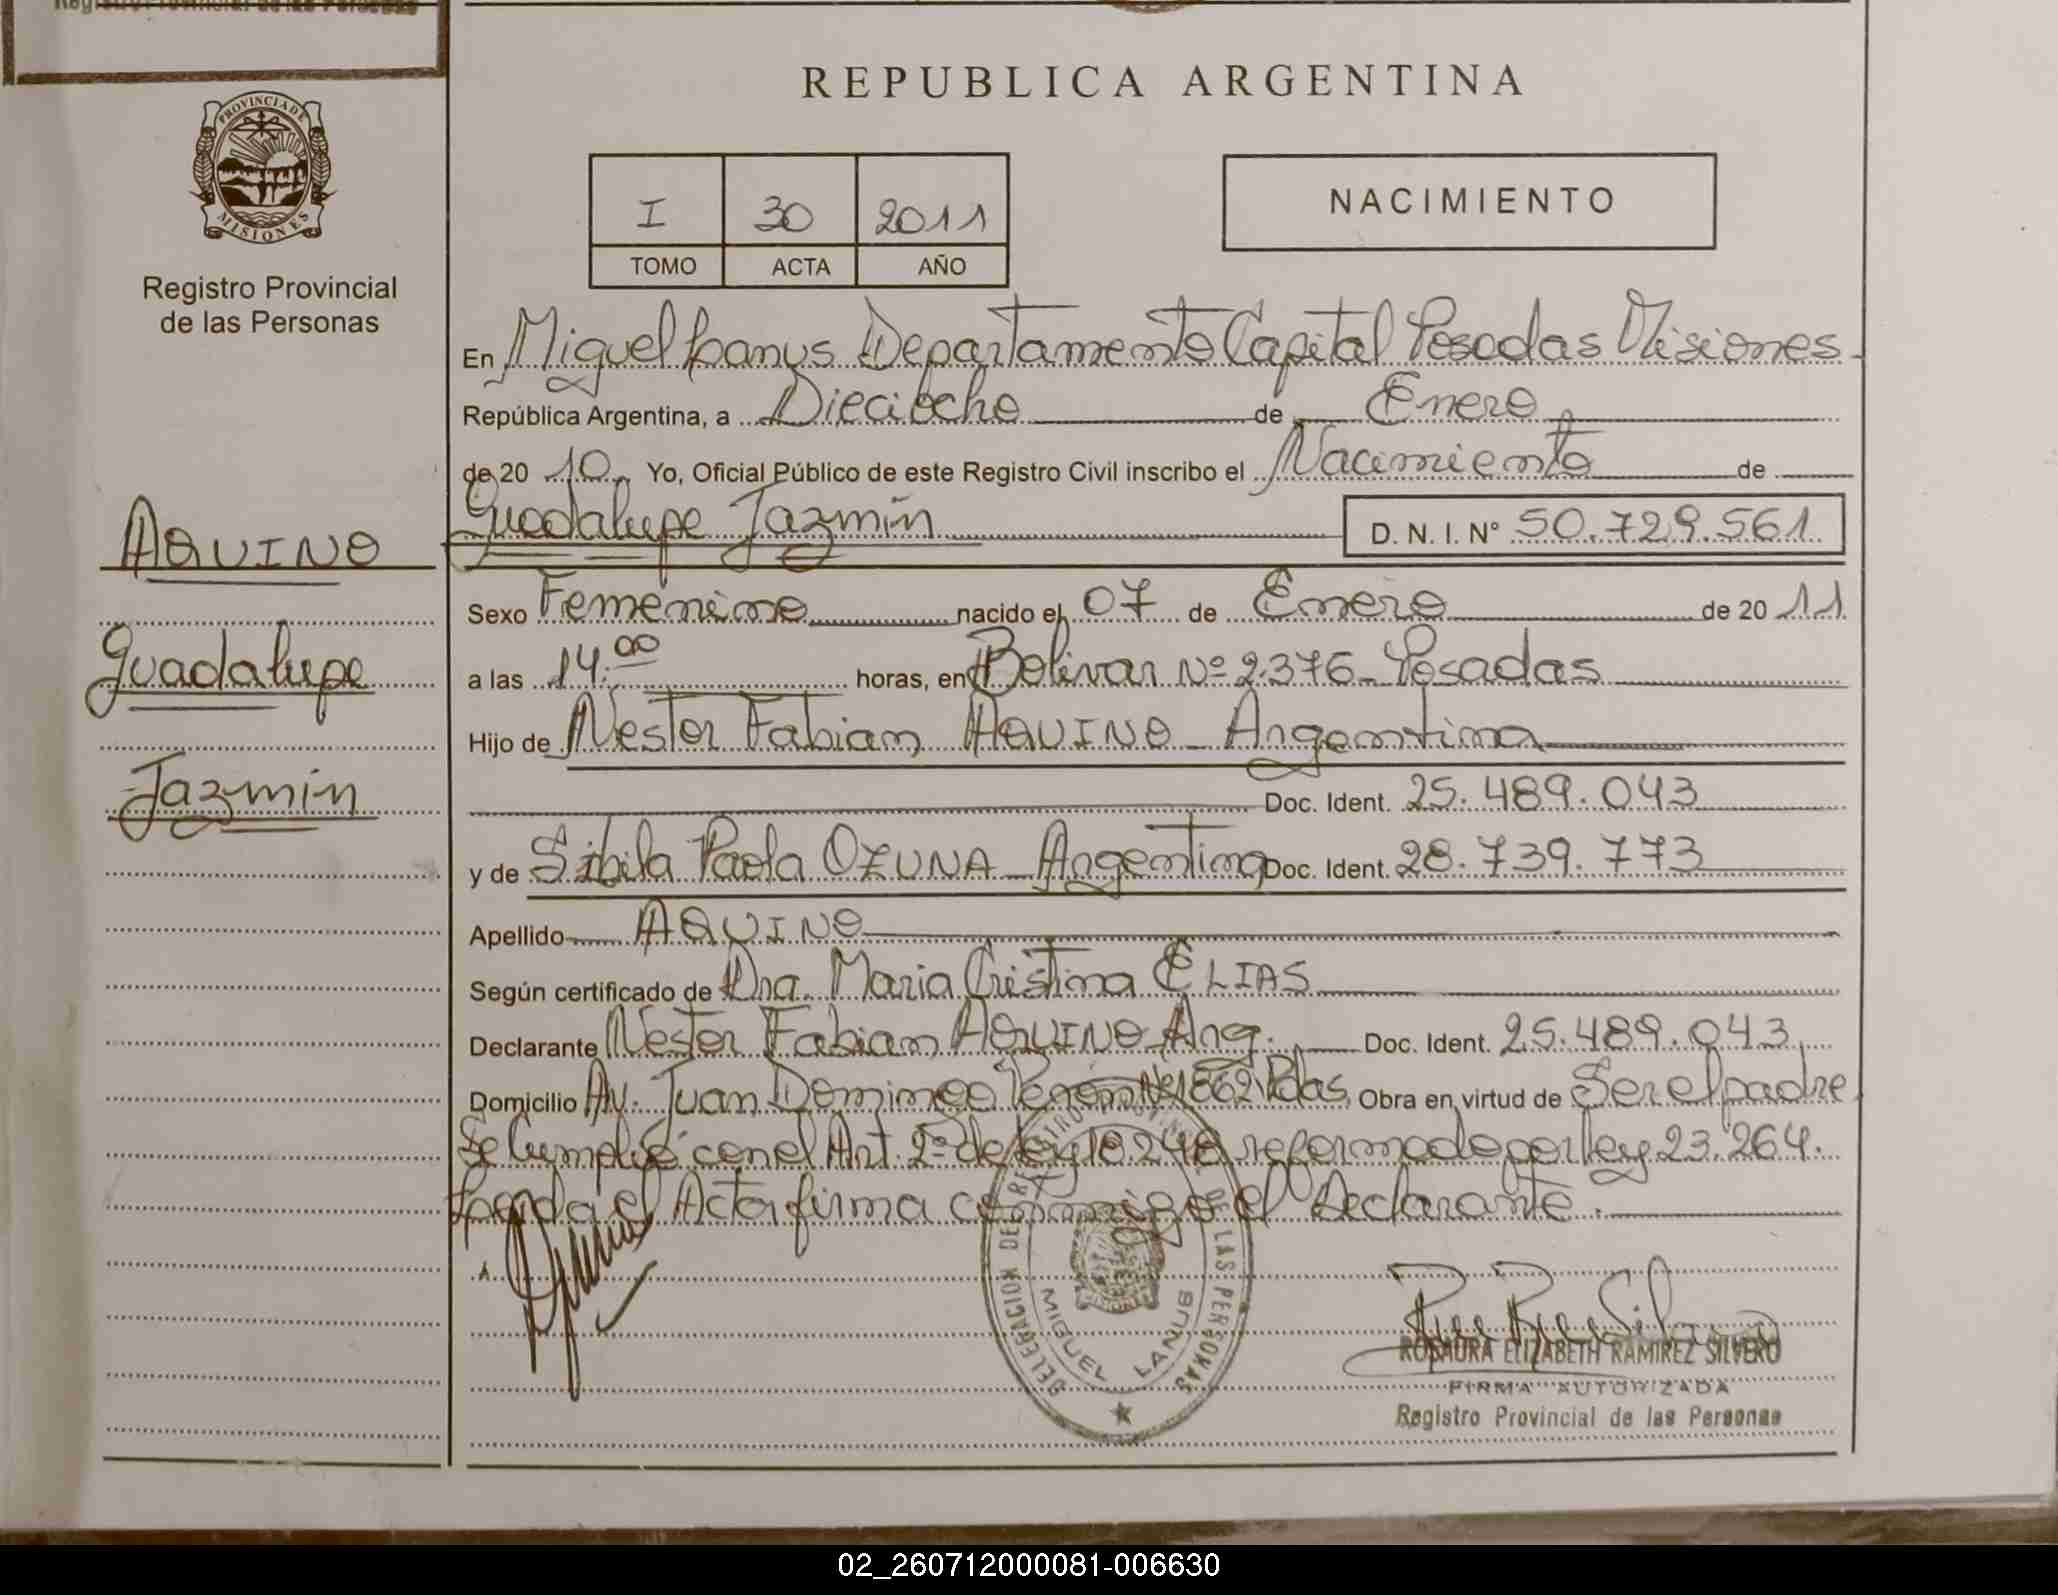 Registro Provincial de las Personas
PROVINCIA DE
MISIONES
Registro Provincial
de las Personas
AQUINO
Guadalupe
Jazmín
REPUBLICA ARGENTINA
I 30 2011
TOMO ACTA AÑO
NACIMIENTO
En Miguel Lanus Departamento Capital Posadas Misiones
República Argentina, a Dieciocho de Enero
de 20 10 Yo, Oficial Público de este Registro Civil inscribo el Nacimiento de
Guadalupe Jazmín D. N. I. N° 50.729.561
Sexo Femenino nacido el 07 de Enero de 20 11
a las 14.00 horas, en Bolivar Nº 2.376 - Posadas
Hijo de Nestor Fabian AQUINO - Argentina
Doc. Ident. 25.489.043
y de Sibila Paola OZUNA - Argentina Doc. Ident. 28.739.773
Apellido AQUINO
Según certificado de Dra. Maria Cristina ELIAS
Declarante Nestor Fabian AQUINO - Arg. Doc. Ident. 25.489.043
Domicilio Av. Juan Domingo Peron Nº 1862 Pdas Obra en virtud de Ser el padre
Se Cumplió con el Art. 2º de ley 18.248 reformado por ley 23.264.
Leida el Acta firma conmigo el Declarante.
DELEGACION DE REGISTRO PROVINCIAL DE LAS PERSONAS
MIGUEL LANUS
ROSAURA ELIZABETH RAMIREZ SILVERO
FIRMA AUTORIZADA
Registro Provincial de las Personas
02_260712000081-006630